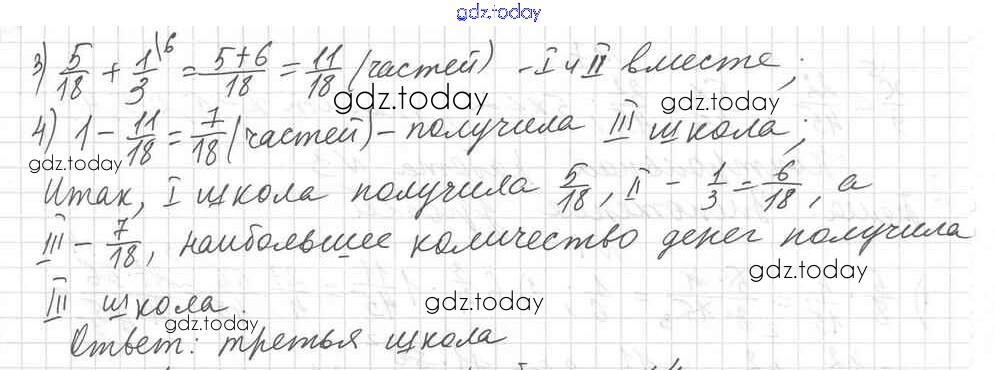 gdz.today
3) 5/18 + 1/3 \6 = 5+6/18 = 11/18 (частей) - I и II вместе;
gdz.today
gdz.today
4) 1 - 11/18 = 7/18 (частей) - получила III школа;
gdz.today
Итак, I школа получила 5/18, II - 1/3 = 6/18, а
III - 7/18, наибольшее количество денег получила
gdz.today
III школа.
gdz.today
gdz.today
Ответ: третья школа